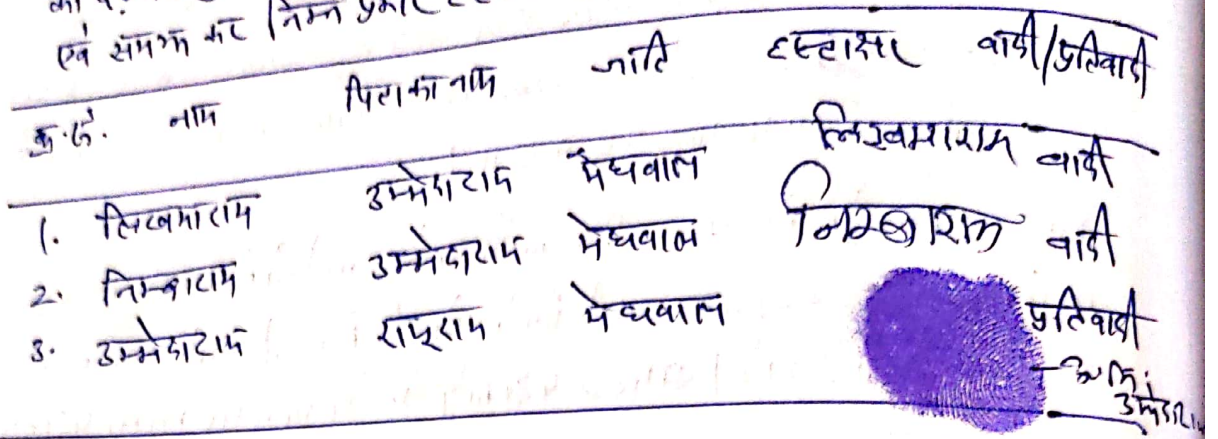 एवं समझ कर निम्न प्रकार
क्र.सं. नाम पिता का नाम जाति हस्ताक्षर वादी/प्रतिवादी
1. लिखमाराम उम्मेदाराम मेघवाल लिखमाराम वादी
2. निम्बाराम उम्मेदाराम मेघवाल निम्बाराम वादी
3. उम्मेदाराम रामूराम मेघवाल प्रतिवादी
उम्मेदाराम